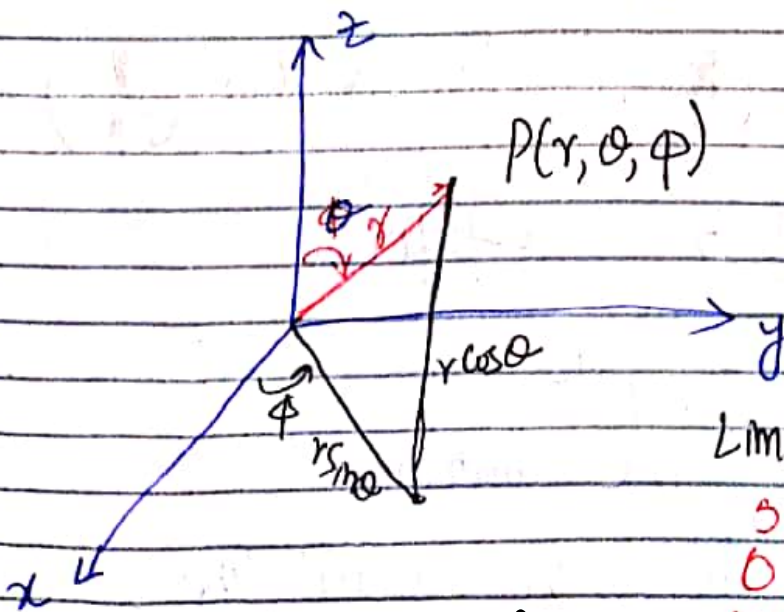 z
P(r, θ, φ)
θ
r
r cosθ
y
φ
r sinθ
Lim
x